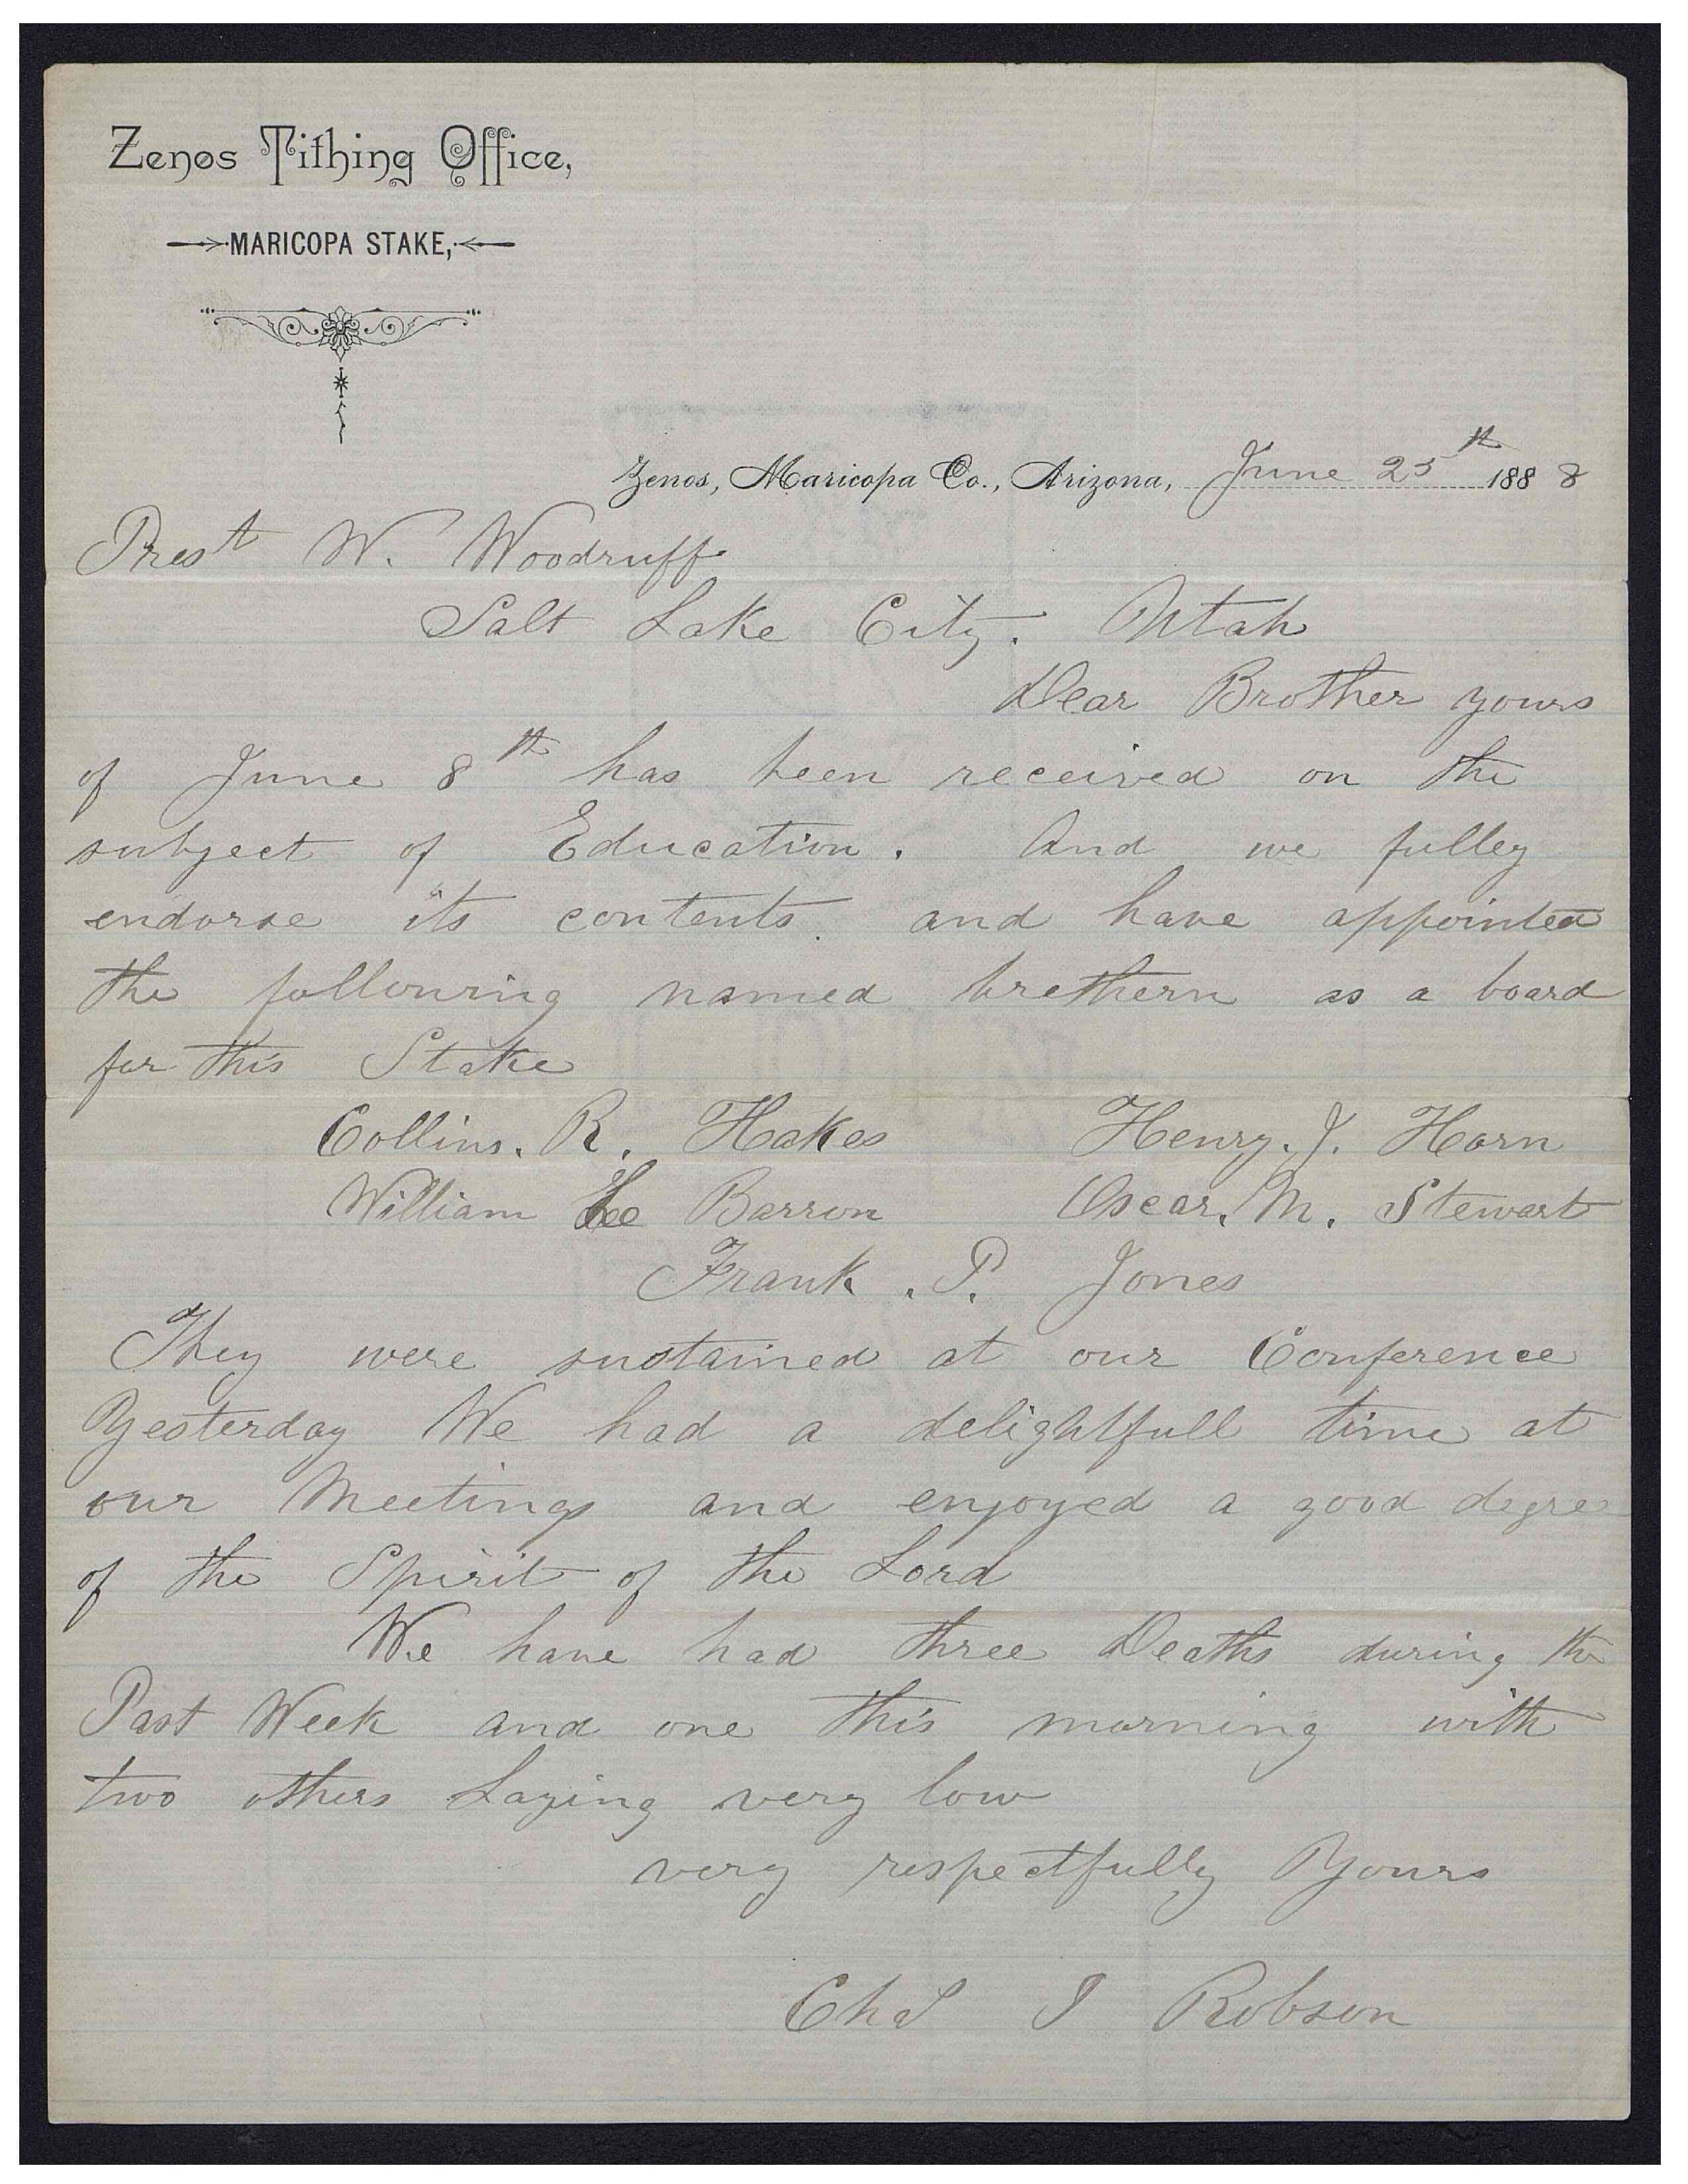 Zenos Tithing Office,
MARICOPA STAKE,
Zenos, Maricopa Co., Arizona, June 25th 1888
Prest W. Woodruff
Salt Lake City. Utah
Dear Brother yours
of June 8th has been received on the
subject of Education. And we fulley
endorse its contents. and have appointed
the following named brethern as a board
for this Stake
Collins. R. Hakes Henry. J. Horn
William Le Barron Oscar. M. Stewart
Frank. P. Jones
They were sustained at our Conference
Yesterday We had a delightfull time at
our Meetings and enjoyed a good degree
of the Spirit of the Lord
We have had three Deaths during the
Past Week and one this morning with
two others Laying very low
very respectfully Yours
Chas I Robson